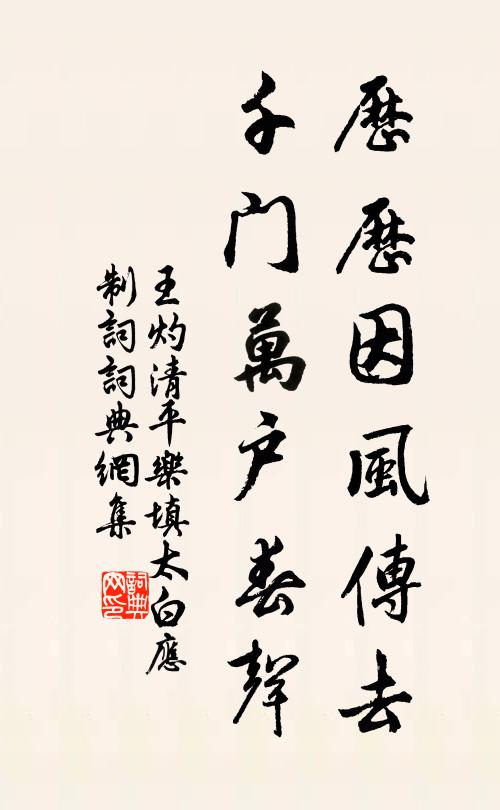 歷歷因風傳去
千門萬戶春聲
王灼清平樂填太白應
制詞詞典網集
詞典網印